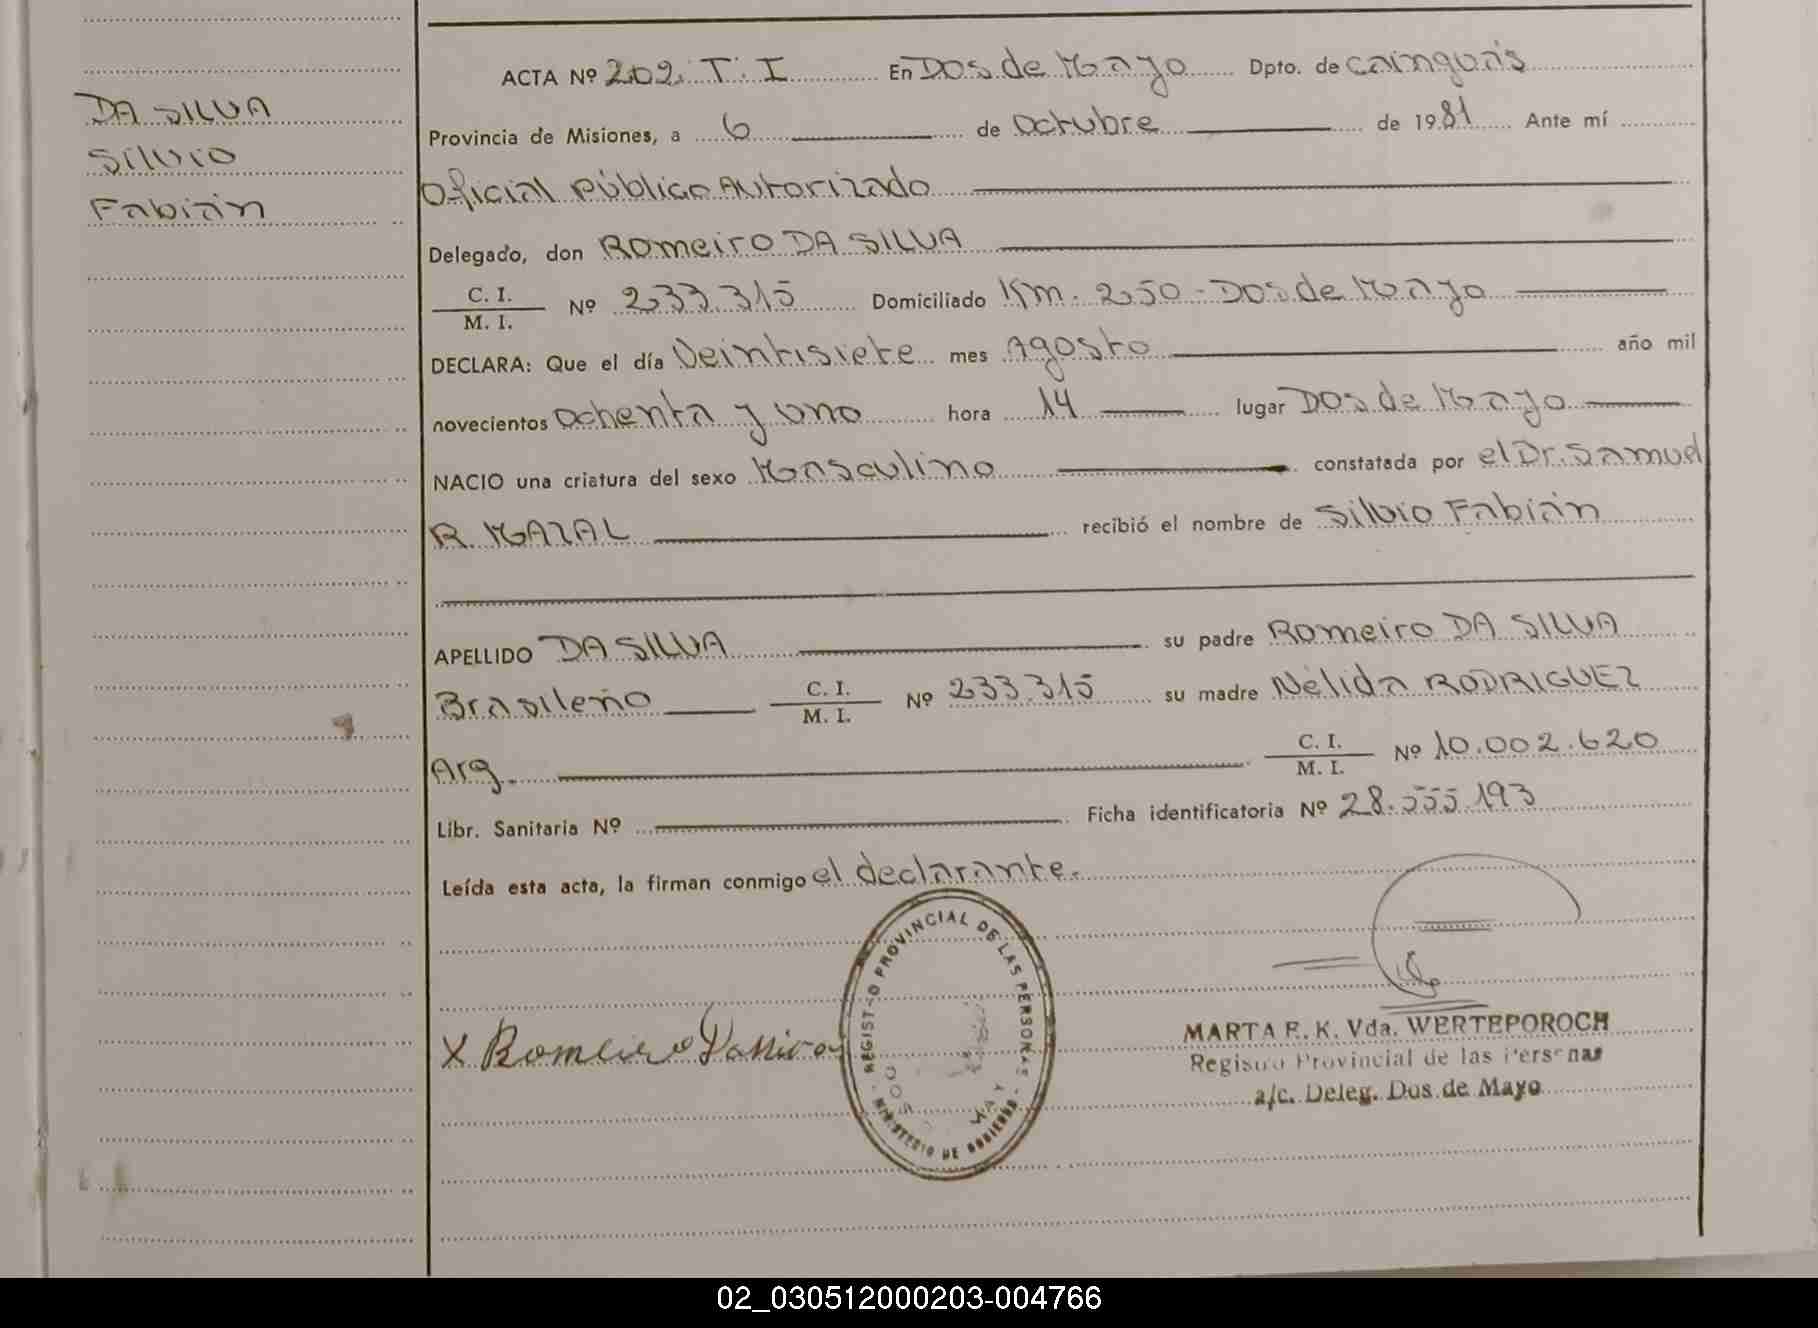 DA SILVA
Silvio
Fabián
ACTA Nº 202. T. I En Dos de Mayo Dpto. de Cainguás
Provincia de Misiones, a 6 de Octubre de 1981 Ante mí
Oficial Público Autorizado
Delegado, don Romeiro DA SILVA
C. I.
M. I. Nº 233.315 Domiciliado Km. 250 - Dos de Mayo
DECLARA: Que el día Veintisiete mes Agosto año mil
novecientos Ochenta y uno hora 14 lugar Dos de Mayo
NACIO una criatura del sexo Masculino constatada por el Dr. Samuel
R. MAZAL recibió el nombre de Silvio Fabián
APELLIDO DA SILVA su padre Romeiro DA SILVA
Brasileño C. I.
M. I. Nº 233.315 su madre Nélida RODRIGUEZ
Arg. C. I.
M. I. Nº 10.002.620
Libr. Sanitaria Nº Ficha identificatoria Nº 28.555.193
Leída esta acta, la firman conmigo el declarante.
REGISTRO PROVINCIAL DE LAS PERSONAS
MINISTERIO DE GOBIERNO
DOS MAY
X Romeiro
MARTA E. K. Vda. WERTEPOROCH
Registro Provincial de las Personas
a/c. Deleg. Dos de Mayo
02_030512000203-004766